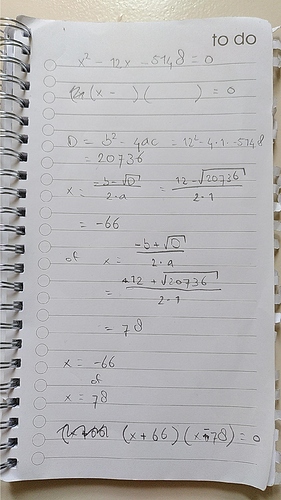 to do
x² - 12x - 5148 = 0
(x - ) ( ) = 0
D = b² - 4ac = 12² - 4 · 1 · -5148
= 20736
x = -b - √D / 2 · a = 12 - √20736 / 2 · 1
= -66
of x = -b + √D / 2 · a
= +12 + √20736 / 2 · 1
= 78
x = -66
of
x = 78
(x + 66) (x - 78) = 0